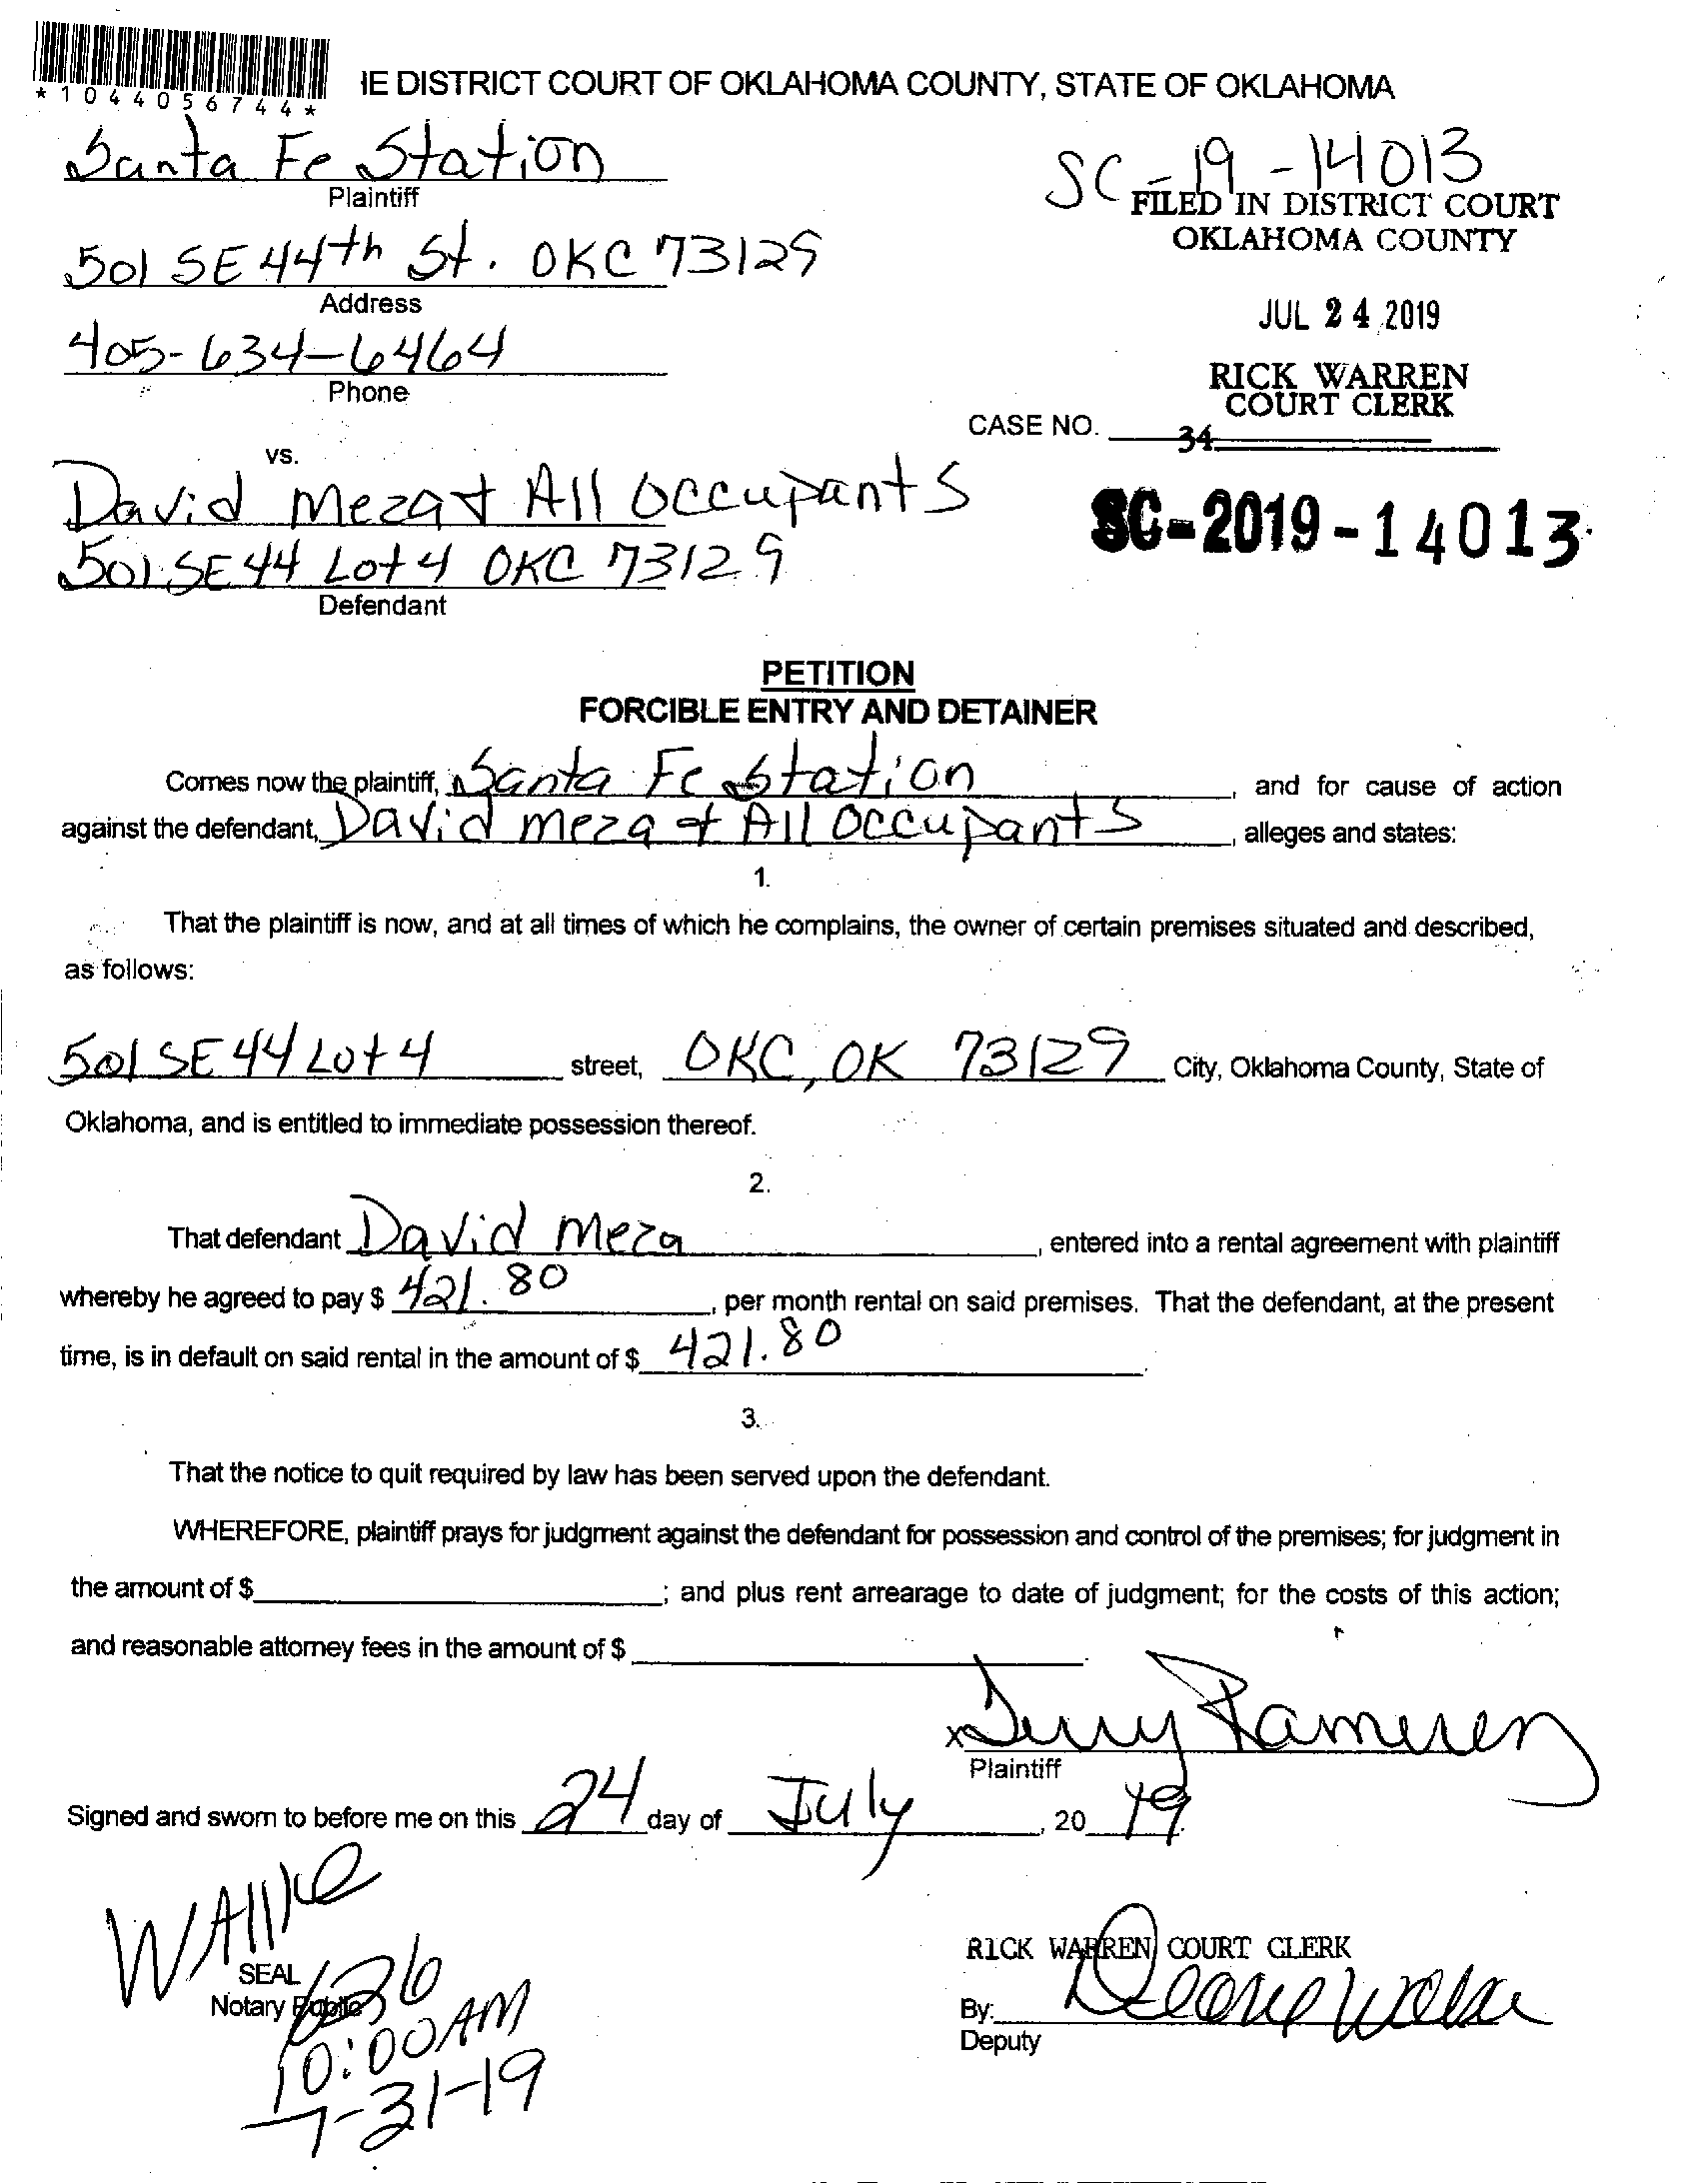 *1044056744*
IE DISTRICT COURT OF OKLAHOMA COUNTY, STATE OF OKLAHOMA
Santa Fe Station
Plaintiff
SC-19-14013
FILED IN DISTRICT COURT
OKLAHOMA COUNTY
501 SE 44th St. OKC 73129
Address
JUL 24 2019
405-634-6464
Phone
RICK WARREN
COURT CLERK
CASE NO.
34
vs.
David Meza & All Occupants
SC-2019-14013
501 SE 44 Lot 4 OKC 73129
Defendant
PETITION
FORCIBLE ENTRY AND DETAINER
Comes now the plaintiff, Santa Fe Station, and for cause of action
against the defendant, David Meza & All Occupants, alleges and states:
1.
That the plaintiff is now, and at all times of which he complains, the owner of certain premises situated and described,
as follows:
501 SE 44 Lot 4 street, OKC, OK 73129 City, Oklahoma County, State of
Oklahoma, and is entitled to immediate possession thereof.
2.
That defendant David Meza, entered into a rental agreement with plaintiff
whereby he agreed to pay $ 421.80, per month rental on said premises. That the defendant, at the present
time, is in default on said rental in the amount of $ 421.80.
3.
That the notice to quit required by law has been served upon the defendant.
WHEREFORE, plaintiff prays for judgment against the defendant for possession and control of the premises; for judgment in
the amount of $; and plus rent arrearage to date of judgment; for the costs of this action;
and reasonable attorney fees in the amount of $.
x
Plaintiff
Signed and sworn to before me on this 24 day of July, 20 19.
SEAL
Notary Public
636
10:00AM
7-31-19
RICK WARREN COURT CLERK
By:
Deputy